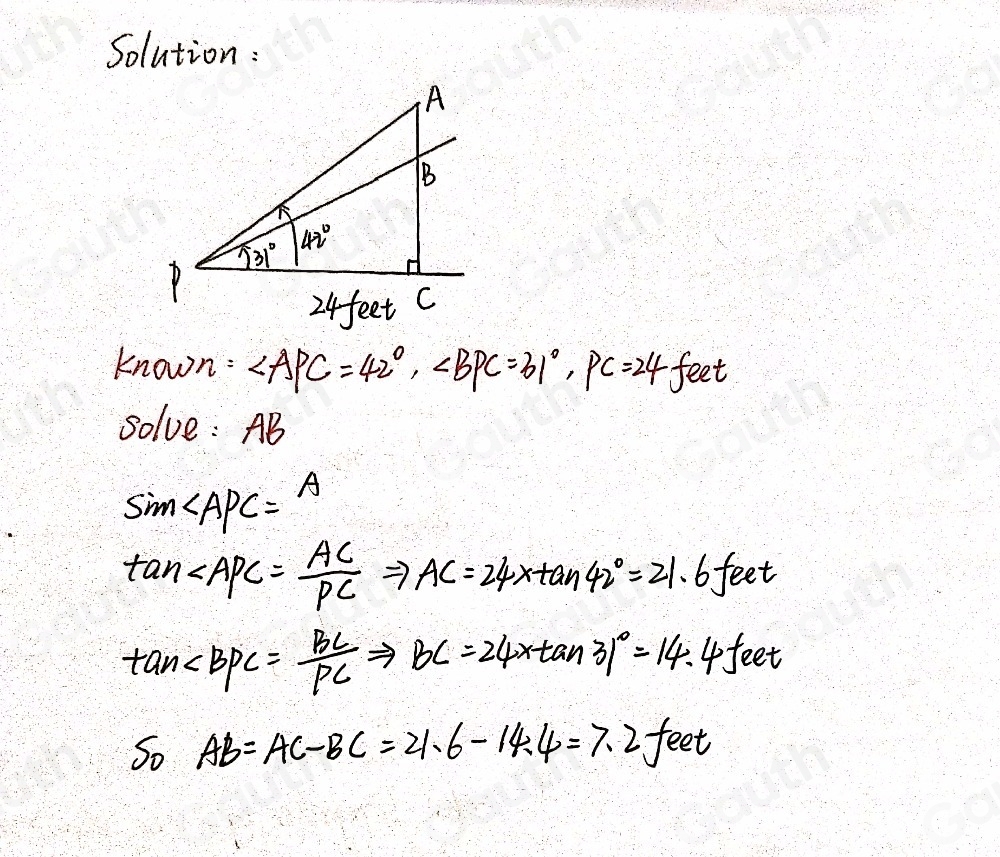 Solution :
A
B
42°
31°
P
24 feet C
Known : <APC = 42° , <BPC = 31° , PC = 24 feet
Solve : AB
Sin <APC = A
tan <APC = AC/PC ⇒ AC = 24×tan 42° = 21.6 feet
tan <BPC = BC/PC ⇒ BC = 24×tan 31° = 14.4 feet
So AB = AC-BC = 21.6 - 14.4 = 7.2 feet
Gauth